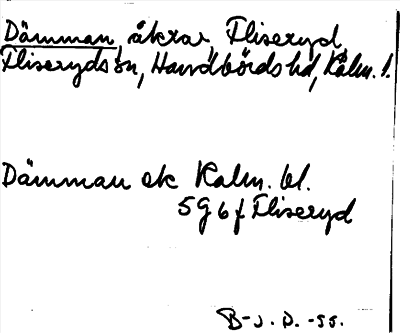 Dämman, åkrar, Fliseryd,
Fliseryds sn, Handbörds hd, Kalm. l.
Dämman ek Kalm. bl.
5 G 6 f Fliseryd
B-J. D. -55.